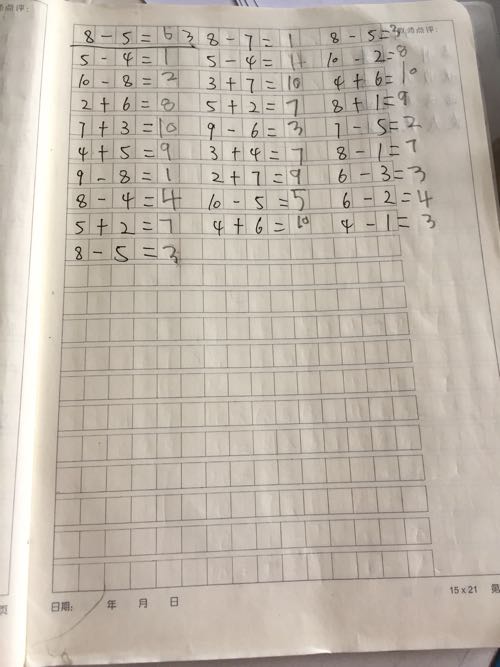 教师点评:
8-5=6 3 8-7=1 8-5=3
5-4=1 5-4=1 10-2=8
10-8=2 3+7=10 4+6=10
2+6=8 5+2=7 8+1=9
7+3=10 9-6=3 7-5=2
4+5=9 3+4=7 8-1=7
9-8=1 2+7=9 6-3=3
8-4=4 10-5=5 6-2=4
5+2=7 4+6=10 4-1=3
8-5=3
日期: 年 月 日 15x21